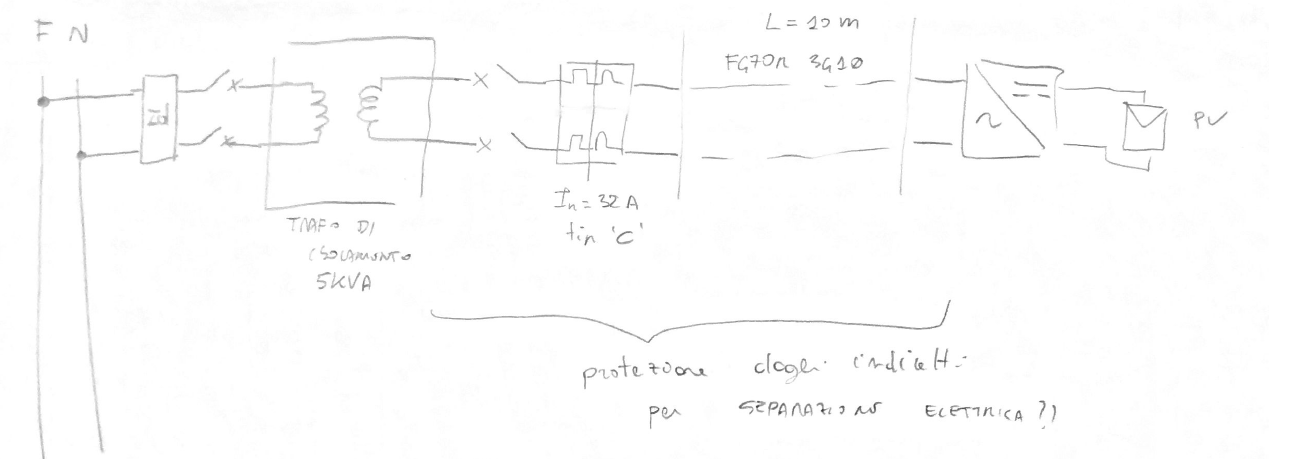 F N
L = 10 m
FG7OR 3G10
Id
PV
In = 32 A
tipo 'C'
TRAFO DI
ISOLAMENTO
5KVA
protezione dagli indiretti
per SEPARAZIONE ELETTRICA ?)